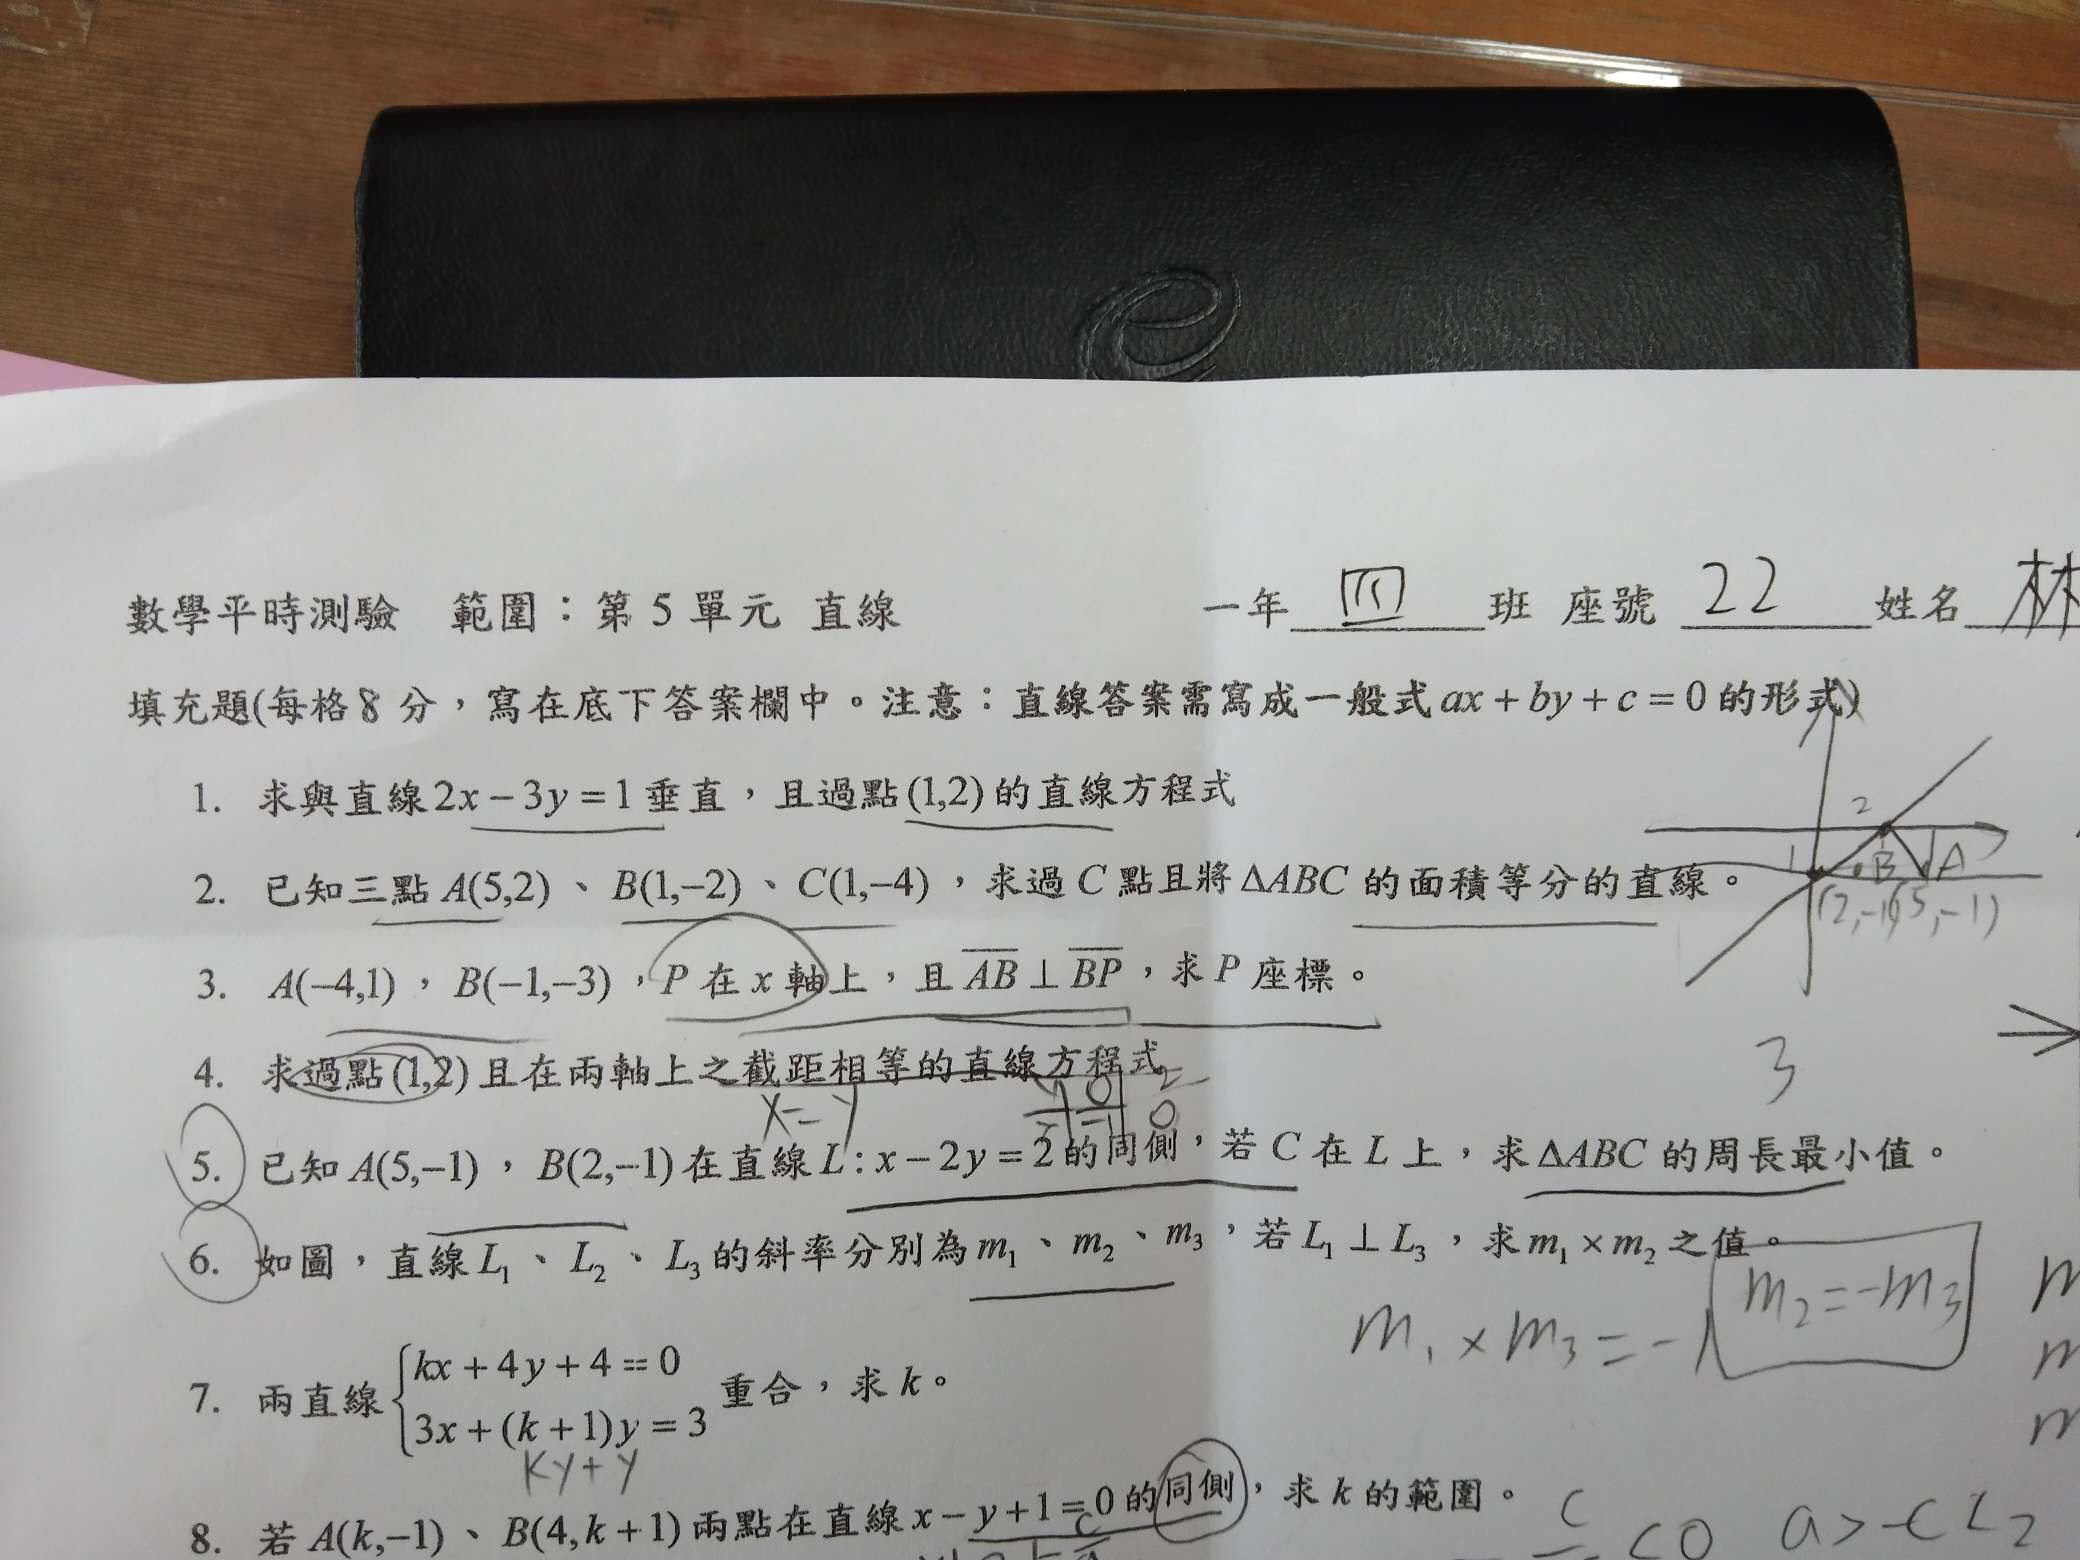 數學平時測驗 範圍：第 5 單元 直線 一年 四 班 座號 22 姓名 林
填充題(每格 8 分，寫在底下答案欄中。注意：直線答案需寫成一般式 ax + by + c = 0 的形式)
1. 求與直線 2x − 3y = 1 垂直，且過點 (1,2) 的直線方程式
2. 已知三點 A(5,2)、B(1,−2)、C(1,−4)，求過 C 點且將 ΔABC 的面積等分的直線。
2
1 B A
(2,-1)(5,-1)
3. A(−4,1)，B(−1,−3)，P 在 x 軸上，且 \overline{AB} ⊥ \overline{BP}，求 P 座標。
3
4. 求過點 (1,2) 且在兩軸上之截距相等的直線方程式
x = y
0 2
-1 0
5. 已知 A(5,−1)，B(2,−1) 在直線 L : x − 2y = 2 的同側，若 C 在 L 上，求 ΔABC 的周長最小值。
6. 如圖，直線 L₁、L₂、L₃ 的斜率分別為 m₁、m₂、m₃，若 L₁ ⊥ L₃，求 m₁ × m₂ 之值。
m₂ = -m₃
m₁ × m₃ = -1
7. 兩直線 { kx + 4y + 4 = 0
3x + (k + 1)y = 3 重合，求 k。
ky + y
8. 若 A(k,−1)、B(4, k + 1) 兩點在直線 x − y + 1 = 0 的同側，求 k 的範圍。